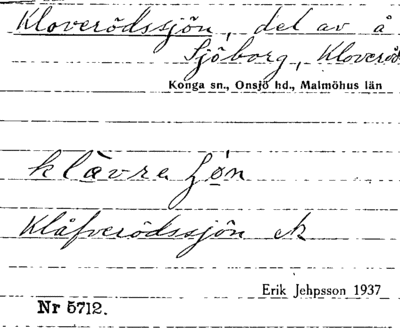 Kloverödssjön, del av å
Sjöborg, Kloveröd
Konga sn., Onsjö hd., Malmöhus län
klåvre ʃøn
Klåfverödssjön ek
Erik Jehpsson 1937
Nr 5712.